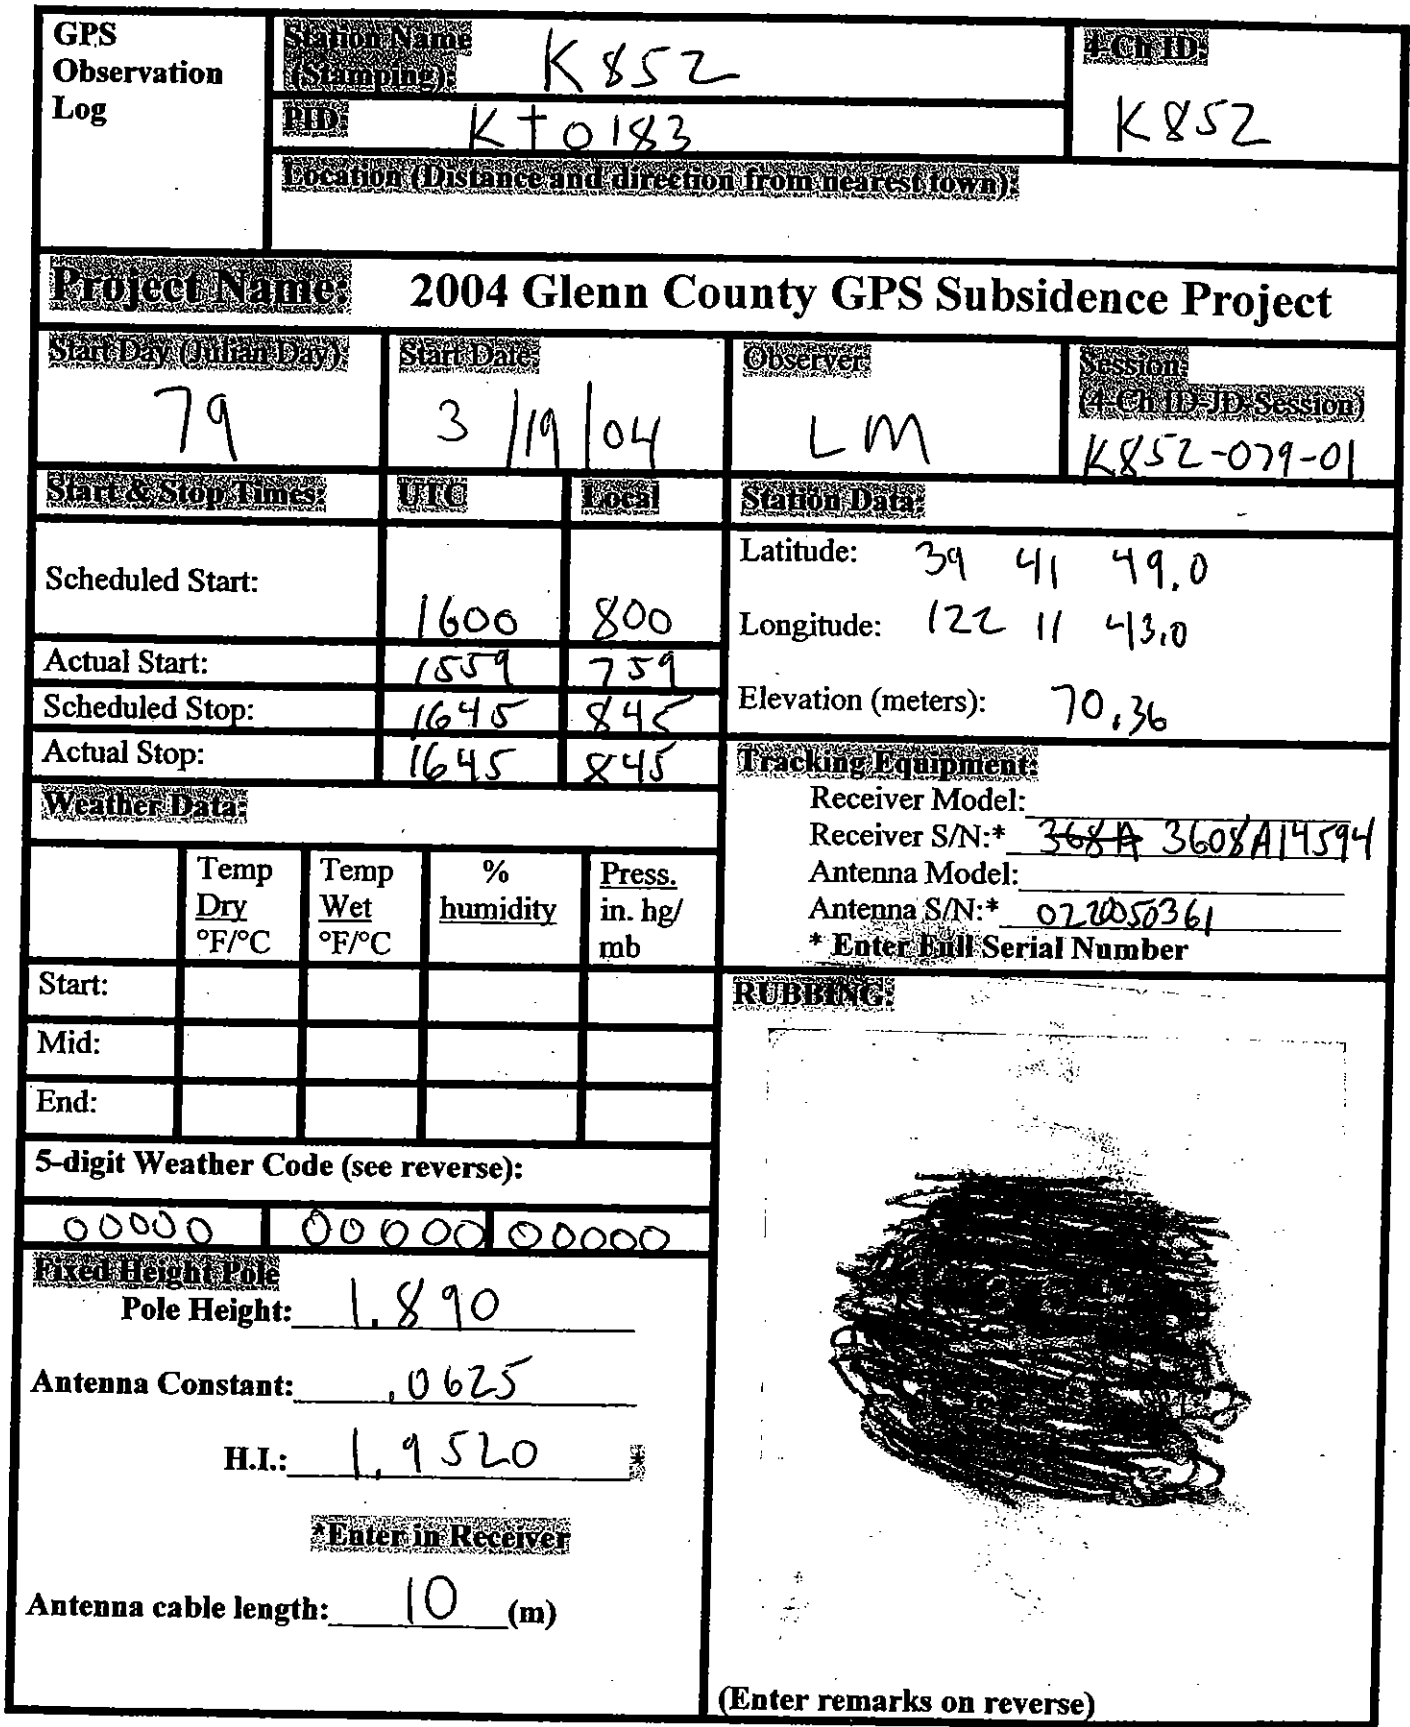 GPS
Observation
Log
Station Name
(Stamping): K852
PID: KT0183
4-Ch ID:
K852
Location (Distance and direction from nearest town):
Project Name: 2004 Glenn County GPS Subsidence Project
Start Day (Julian Day)
79
Start Date:
3/19/04
Observer:
LM
Session:
(4-Ch ID-JD-Session)
K852-079-01
Start & Stop Times: UTC Local
Scheduled Start: 1600 800
Actual Start: 1559 759
Scheduled Stop: 1645 845
Actual Stop: 1645 845
Station Data:
Latitude: 39 41 49.0
Longitude: 122 11 43.0
Elevation (meters): 70.36
Tracking Equipment:
Receiver Model:
Receiver S/N:* 368A 3608A14594
Antenna Model:
Antenna S/N:* 0220050361
* Enter Full Serial Number
Weather Data:
Temp Dry °F/°C
Temp Wet °F/°C
% humidity
Press. in. hg/ mb
Start:
Mid:
End:
5-digit Weather Code (see reverse):
00000 00000 00000
Fixed Height Pole
Pole Height: 1.890
Antenna Constant: .0625
H.I.: 1.9520 *
*Enter in Receiver
Antenna cable length: 10 (m)
RUBBING:
(Enter remarks on reverse)